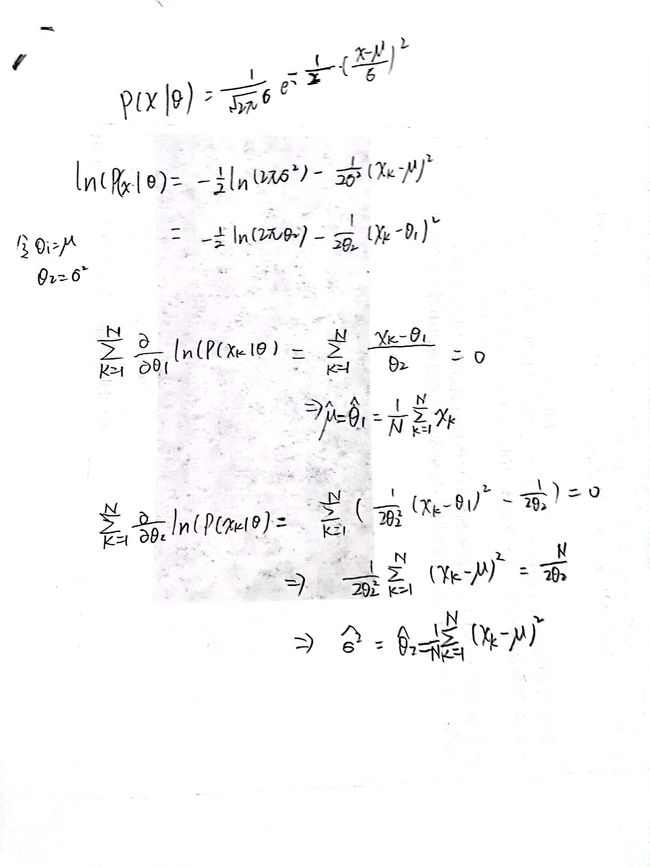 P(X|θ) = 1/(√2π σ) e^(-1/2·((x-μ)/σ)²)
ln(P(x|θ) = -1/2 ln(2πσ²) - 1/(2σ²) (xₖ-μ)²
= -1/2 ln(2πθ₂) - 1/(2θ₂) (xₖ-θ₁)²
令 θ₁=μ
θ₂=σ²
∑_{k=1}^{N} ∂/∂θ₁ ln(P(xₖ|θ) = ∑_{k=1}^{N} (xₖ-θ₁)/θ₂ = 0
⇒ μ̂ = θ̂₁ = 1/N ∑_{k=1}^{N} xₖ
∑_{k=1}^{N} ∂/∂θ₂ ln(P(xₖ|θ) = ∑_{k=1}^{N} ( 1/(2θ₂²) (xₖ-θ₁)² - 1/(2θ₂) ) = 0
⇒ 1/(2θ₂²) ∑_{k=1}^{N} (xₖ-μ)² = N/(2θ₂)
⇒ σ̂² = θ̂₂ = 1/N ∑_{k=1}^{N} (xₖ-μ)²